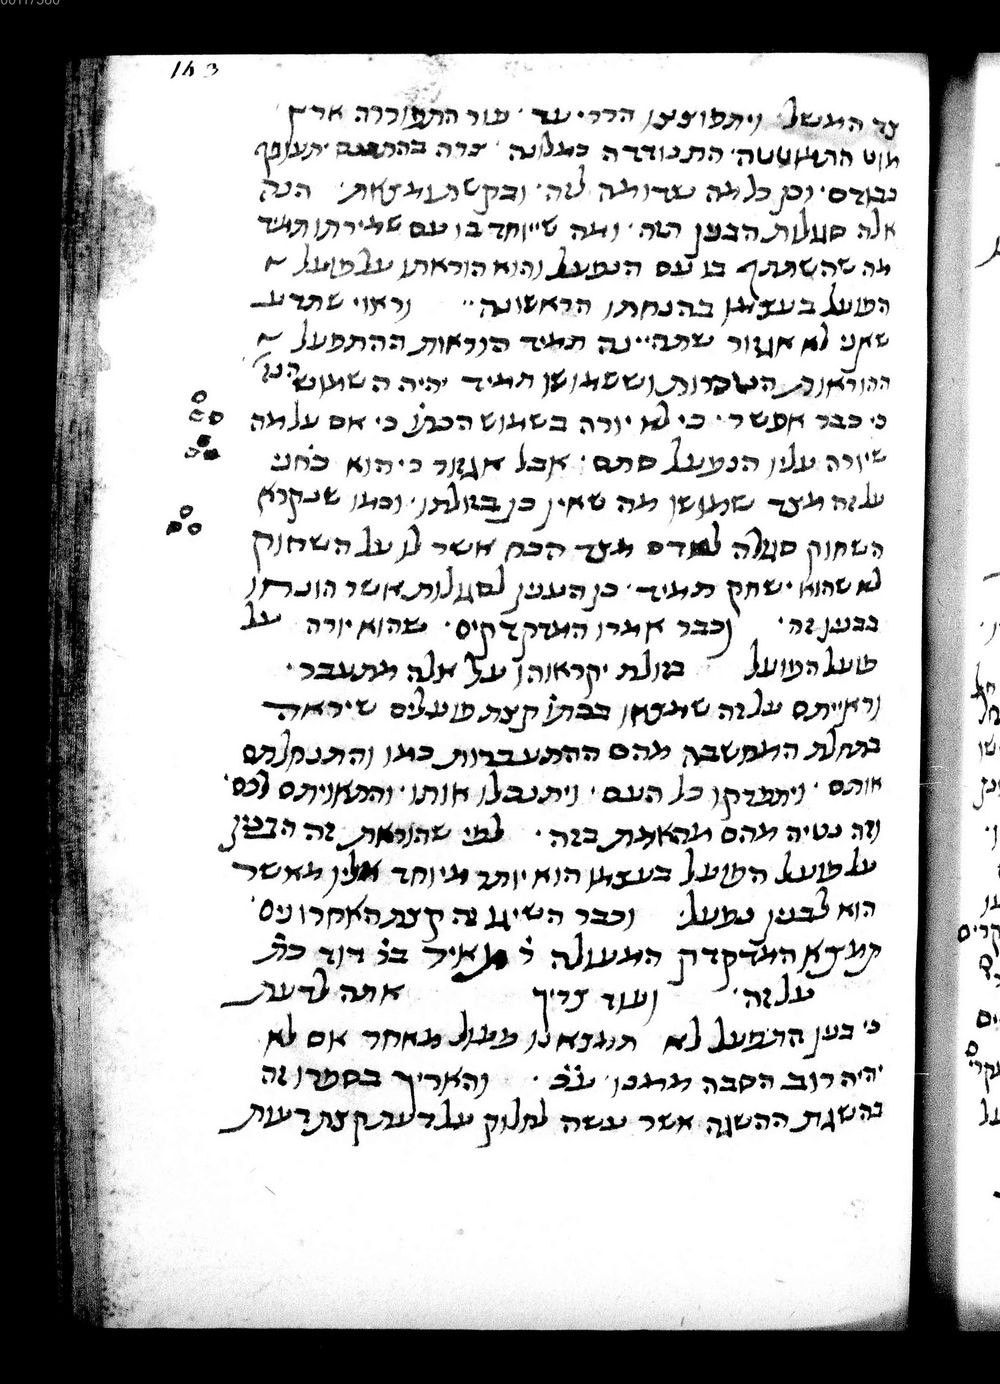 143
צד המשל ויתפוצצו הררי עד ׳ פור התפוררה ארץ
מוט התמוטטה ׳ התנודדה כמלונה ׳ יתעופף
כבודם ׳ וכן כל מה שדומה לזה ׳ ובקשת ומצאת ׳ הנה
אלה סגלות הבנין הזה ׳ ומה שייוחד בו עם שמירתו תמיד
מה שהשתתף בו עם הנפעל והוא הוראתו על פועל
הפועל בעצמו בהנחתו הראשונה ׳׳ וראוי שתדע
שאני לא אגזור שתהיינה תמיד הוראות ההתפעל
ההוראות הנזכרות וששמושן תמיד יהיה השמוש הנז׳
כי כבר אפשר ׳ כי לא יורה בשמוש הכתו׳ כי אם על מה
שיורה עליו הנפעל סתם ׳ אבל אגזור כי הוא כחני
על זה מצד שמושו מה שאין כן בזולתו ׳ וכמו שנקרא
השחוק סגלה לאדם מצד הכח אשר לו על השחוק
לא שהוא ישחק תמיד ׳ כן הענין לסגלות אשר הונחו
בבנין זה ׳ וכבר אמרו המדקדקים ׳ שהוא יורה על
פועל הפועל בזולת יקראוהו על אלה מתעבר ׳
וראייתם על זה שמצאו בכתו׳ קצת פועלים שיראה
בתחלת המחשבה מהם ההתעברות כמו והתנחלתם
אותם ׳ ויתפרקו כל העם ׳ ויתנכלו אותו ׳ והתאויתם לכם ׳
וזה נטיה מהם מהאמת בזה ׳ לפי שהוראת זה הבנין
על פועל הפועל בעצמו הוא יותר מיוחד אליו מאשר
הוא לבנין נפעל ׳ וכבר השיג זה קצת האחרונים ׳
תמצא המדקדק המעולה ר׳ מאיר בר׳ דוד כת׳
על זה ׳ ועוד צריך אתה לדעת
כי בנין התפעל לא תמצאנו פעול מאחר אם לא
יהיה רוב הסבה ממנו ׳ ע״כ ׳ והאריך בספרו זה
בהשגת ההשגה אשר עשה לחלוק על דעת קצת דעות